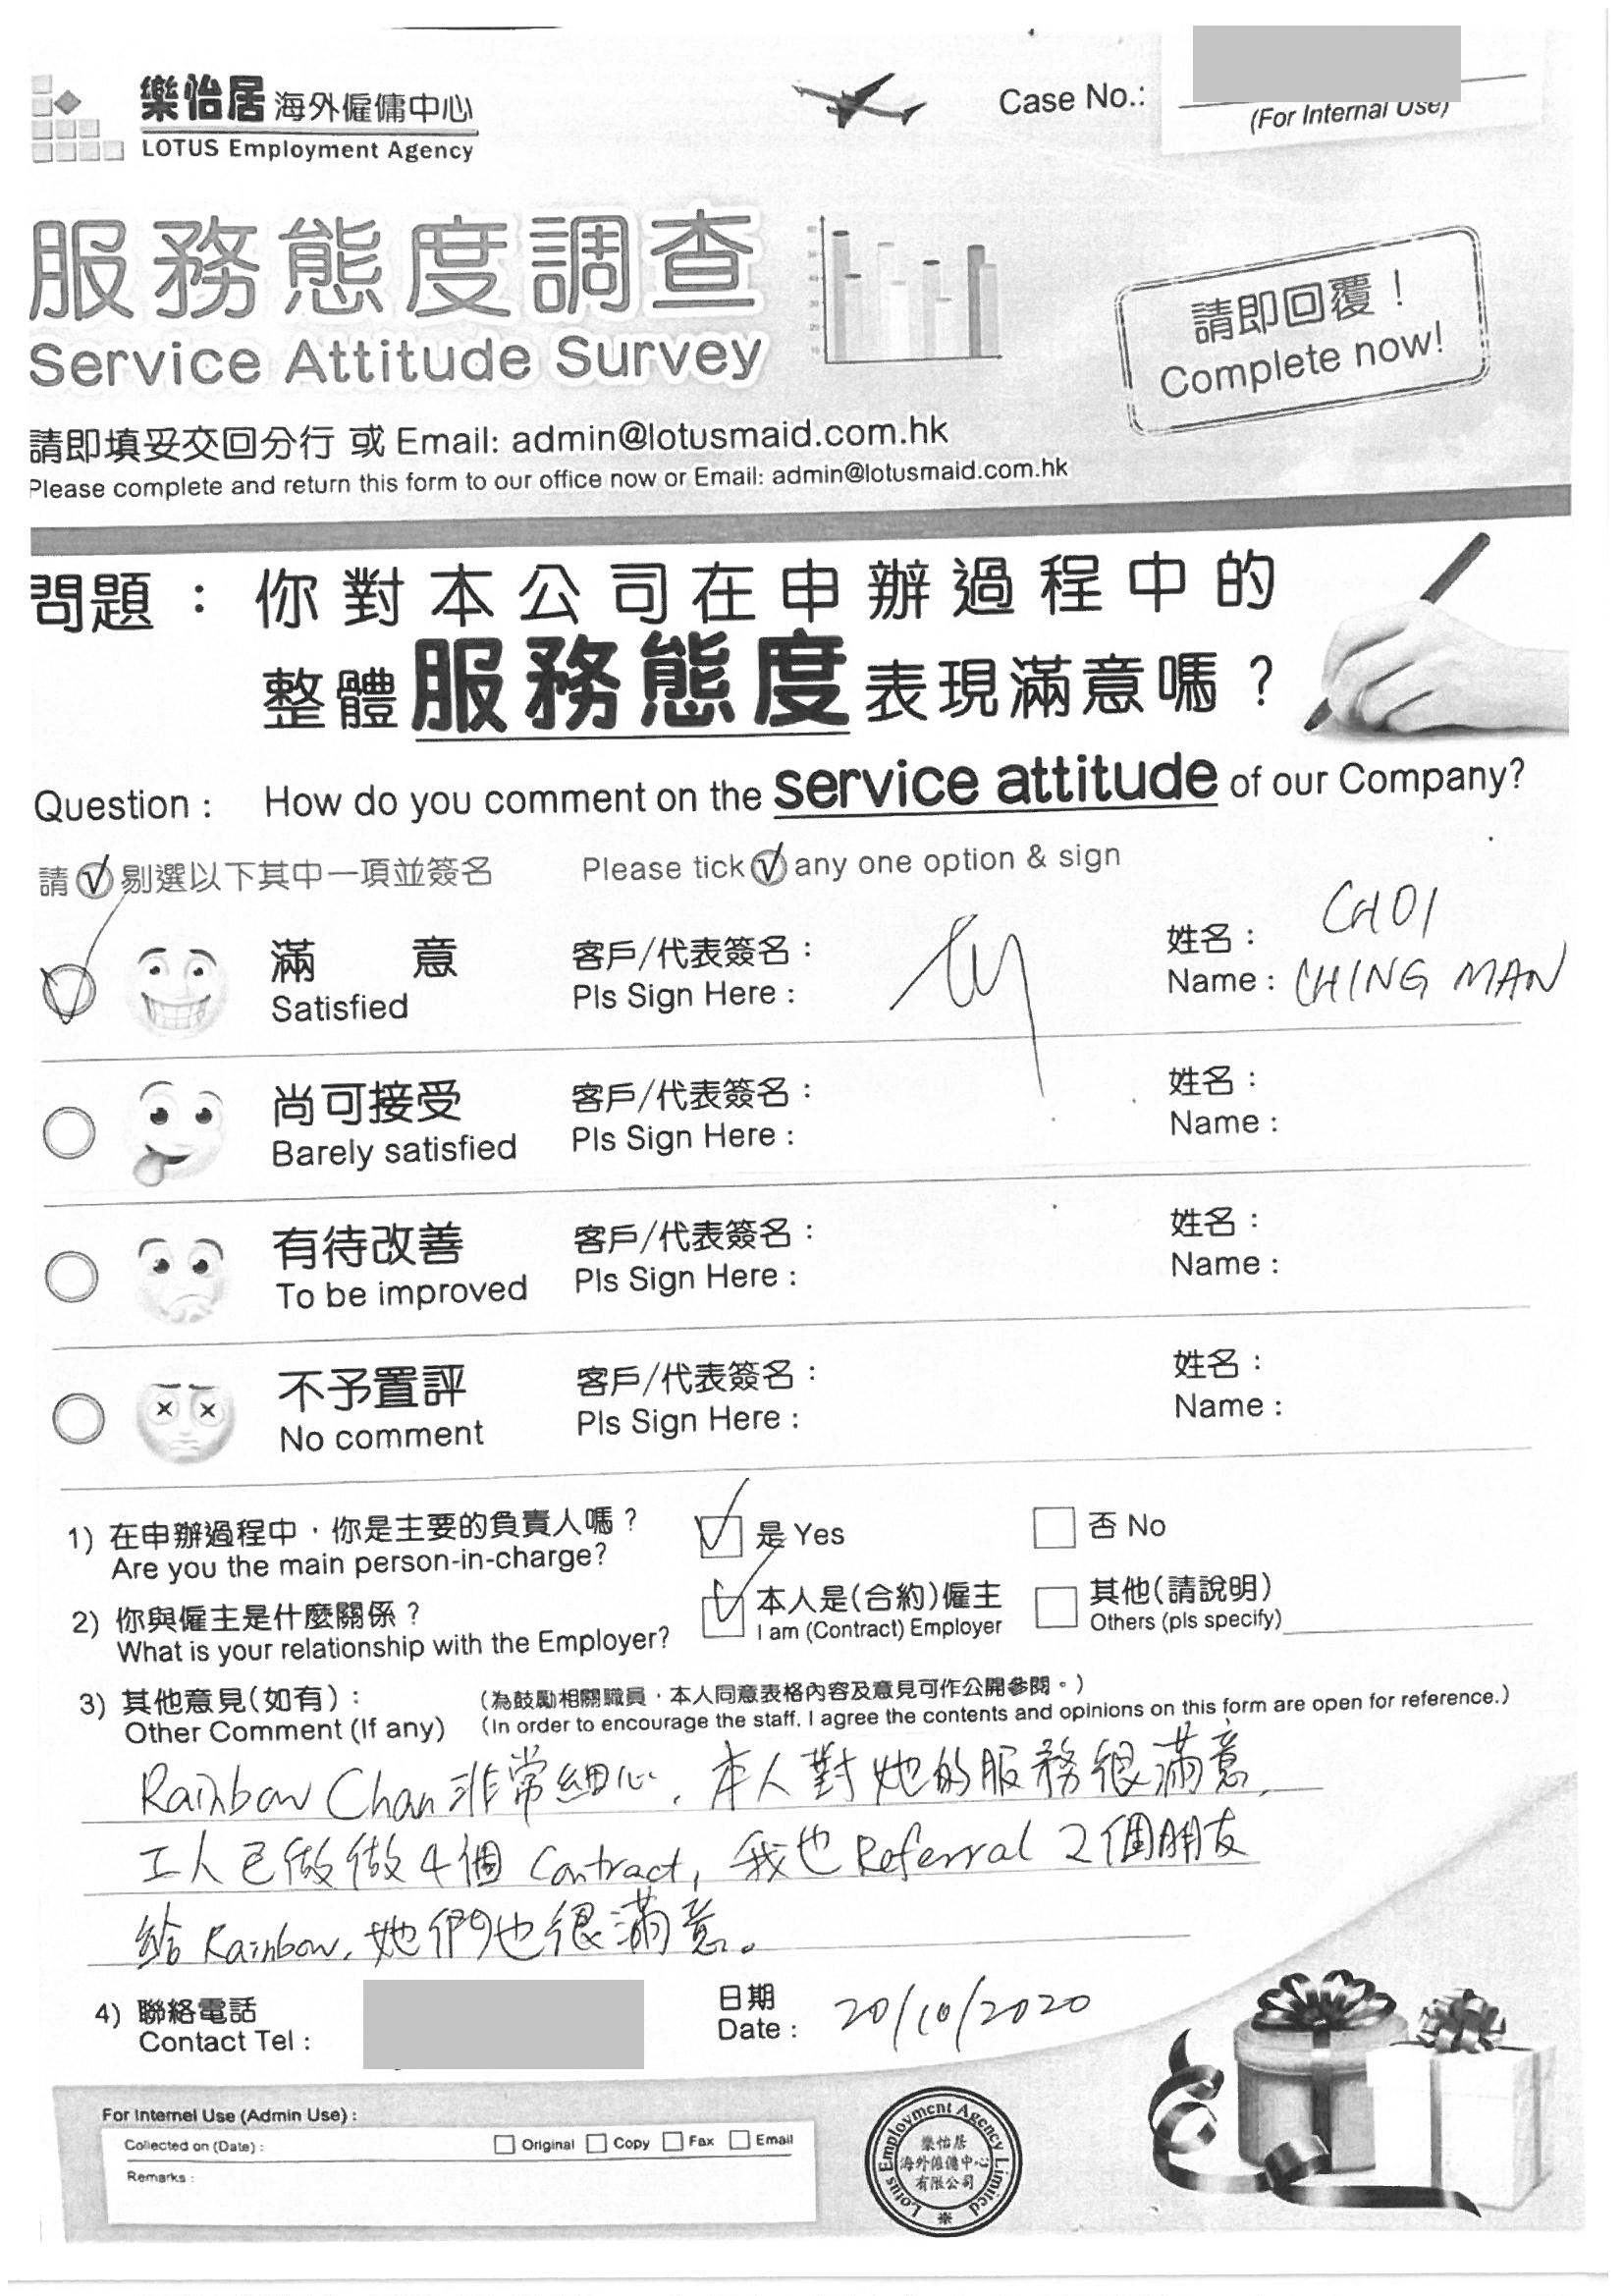 樂怡居 海外僱傭中心
LOTUS Employment Agency
Case No.:
(For Internal Use)
服務態度調查
Service Attitude Survey
請即回覆！
Complete now!
請即填妥交回分行 或 Email: admin@lotusmaid.com.hk
Please complete and return this form to our office now or Email: admin@lotusmaid.com.hk
問題： 你對本公司在申辦過程中的
整體服務態度表現滿意嗎？
Question : How do you comment on the service attitude of our Company?
請 ✓ 剔選以下其中一項並簽名 Please tick ✓ any one option & sign
滿 意 客戶/代表簽名： 姓名： CHOI
Satisfied Pls Sign Here : Name : CHING MAN
尚可接受 客戶/代表簽名： 姓名：
Barely satisfied Pls Sign Here : Name :
有待改善 客戶/代表簽名： 姓名：
To be improved Pls Sign Here : Name :
不予置評 客戶/代表簽名： 姓名：
No comment Pls Sign Here : Name :
1) 在申辦過程中，你是主要的負責人嗎？ 是 Yes 否 No
Are you the main person-in-charge?
2) 你與僱主是什麼關係？ 本人是(合約)僱主 其他(請說明)
What is your relationship with the Employer? I am (Contract) Employer Others (pls specify)
3) 其他意見(如有)： (為鼓勵相關職員，本人同意表格內容及意見可作公開參閱。)
Other Comment (If any) (In order to encourage the staff, I agree the contents and opinions on this form are open for reference.)
Rainbow Chan 非常細心, 本人對她的服務很滿意,
工人已做做4個 Contract, 我也 Referral 2個朋友
給 Rainbow, 她們也很滿意。
4) 聯絡電話 日期
Contact Tel : Date : 20/10/2020
For Internel Use (Admin Use) :
Collected on (Date) : Original Copy Fax Email
Remarks :
Lotus Employment Agency Limited
樂怡居
海外僱傭中心
有限公司